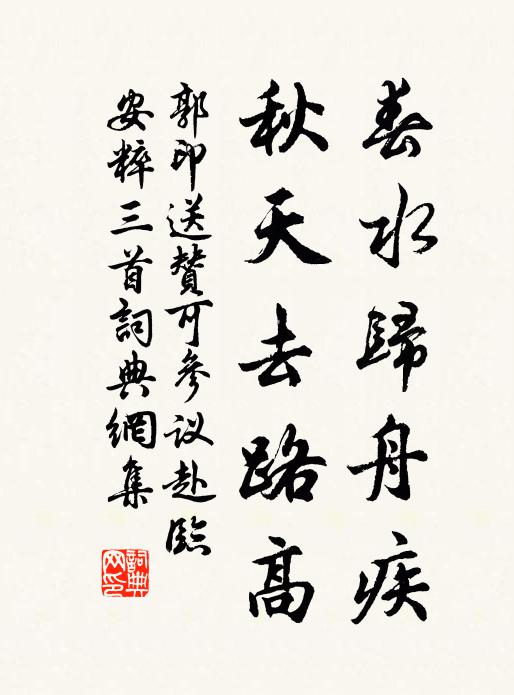 春水歸舟疾
秋天去路高
郭印送贊可參议赴臨
安粹三首詞典網集
詞典
网印